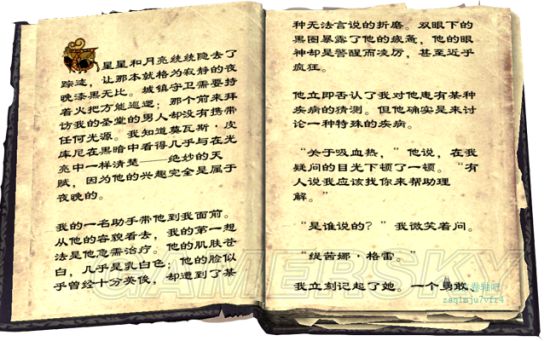 星星和月亮统统隐去了
踪迹，让那本就格为寂静的夜
晚漆黑无比。城镇守卫需要持
着火把方能巡逻；那个前来拜
访我的圣堂的男人却没有携带
任何光源。我知道莫瓦斯·皮
库尼在黑暗中看得几乎与在光
亮中一样清楚——绝妙的天
赋，因为他的兴趣完全是属于
夜晚的。
我的一名助手带他到我面前。
从他的容貌看去，我的第一想
法是他急需治疗。他的肌肤苍
白，几乎是乳白色；他的脸似
乎曾经十分英俊，却遭到了某
种无法言说的折磨。双眼下的
黑圈暴露了他的疲惫，他的眼
神却是警醒而凌厉，甚至近乎
疯狂。
他立即否认了我对他患有某种
疾病的猜测。但他确实是来讨
论一种特殊的疾病。
“关于吸血热，”他说，在我
疑问的目光下顿了一顿。“有
人说我应该找你来帮助理
解。”
“是谁说的？”我微笑着问。
“缇茜娜·格雷。”
我立刻记起了她。一个勇敢、
GAMERSKY
zaq1mju7vfr4